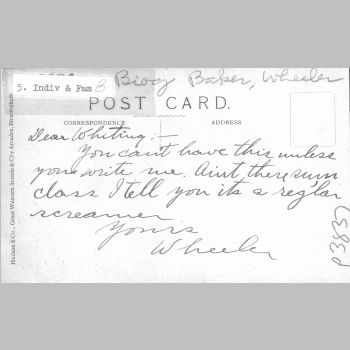 5. Indiv & Fam B
Biog Baker, Wheeler
POST CARD.
CORRESPONDENCE
ADDRESS
Dear Whiting:—
You can't have this unless
you write me. Aint there sum
class I tell you its a reg'lar
screamer
Yours
Wheeler
Hudson & Co., Great Western Arcade & City Arcades, Birmingham
P3835